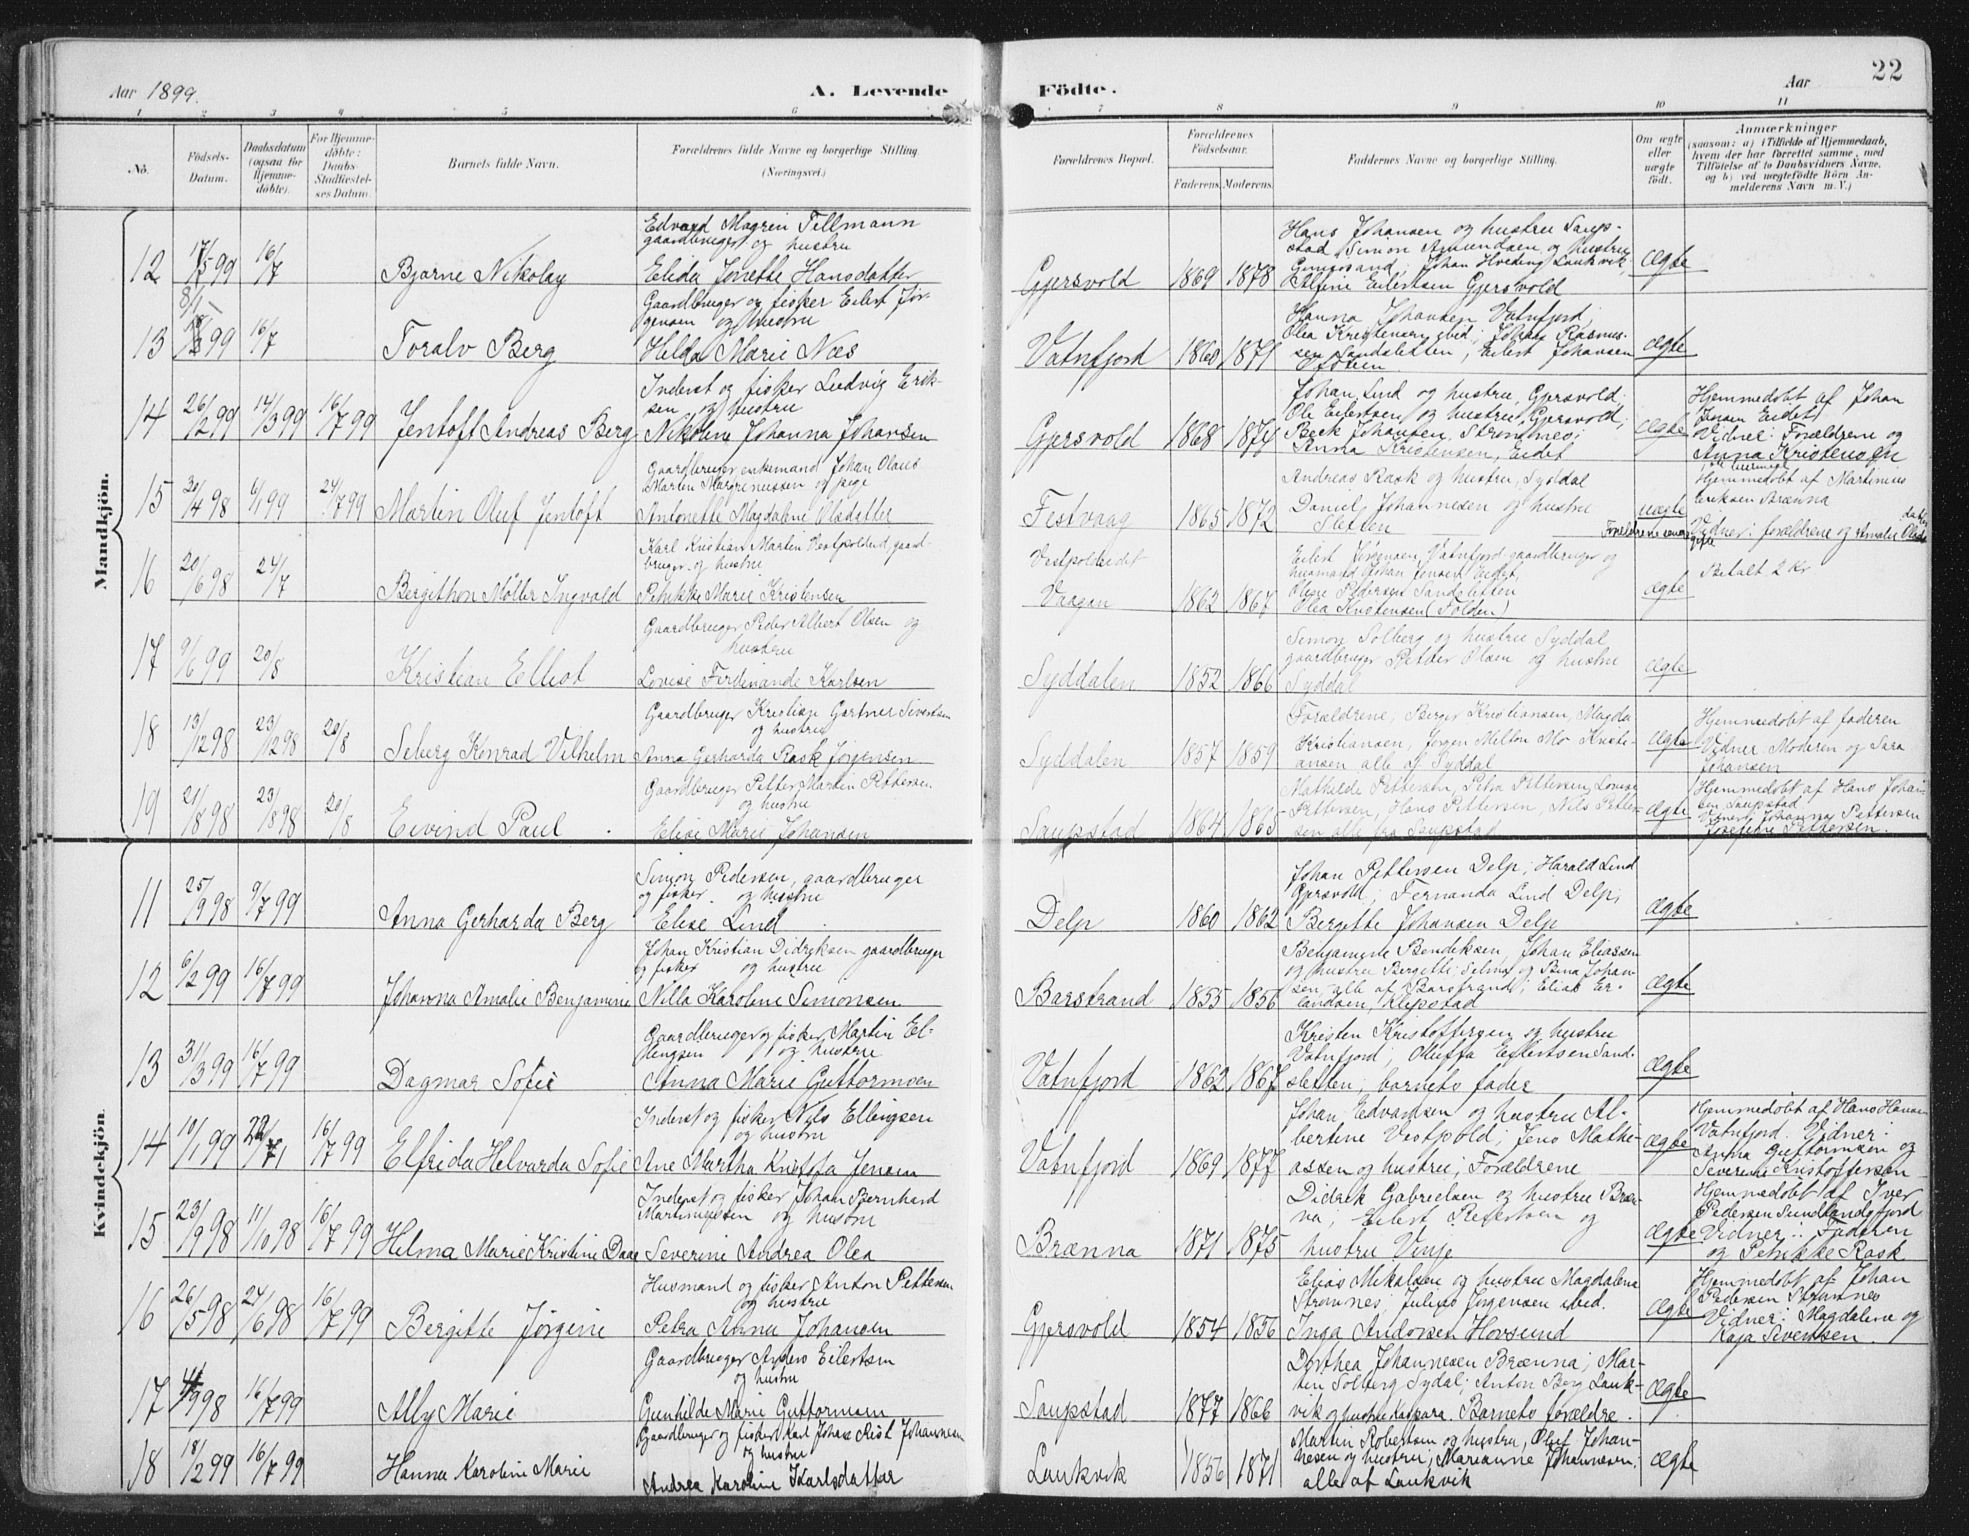 Aar 1899.
A. Levende
Födte.
Aar
22
1 2 3 4 5 6 7 8 9 10 11
No.
Födsels-
Datum.
Daabsdatum
(ogsaa for
Hjemme-
döbte).
For Hjemme-
döbte:
Daabs-
Stadfæstel-
ses Datum.
Barnets fulde Navn.
Forældrenes fulde Navne og borgerlige Stilling.
(Næringsvei.)
Forældrenes Bopæl.
Forældrenes
Födselsaar.
Faderens. Moderens.
Faddernes Navne og borgerlige Stilling.
Om ægte
eller
uægte
født.
Anmærkninger
(saasom: a) i Tilfælde af Hjemmedaab,
hvem der har forrettet samme, med
Tilföielse af to Daabsvidners Navne,
og b) ved uægtefödte Börn An-
melderens Navn m. V.)
Mandkjön.
Edvard Magrin Tellmann
gaardbruger og hustru
12 17/5 99 16/7 Bjarne Nikolay Elida Jonette Hansdatter
Gjersvold 1869 1878
Hans Johansen og hustru Saup-
stad, Simon Amundsen og hustru
Gimsøsand, Johan Hveding Laukvik
Alfine Eilertsen Gjersvold
Ægte
Gaardbruger og fisker Eilert Jør-
gensen og hustru
13 99 16/7 Toralv Berg Hilda Marie Næs
Vatnfjord 1860 1871
Hanna Johansen Vatnfjord;
Olea Kristensen ibid; Johan Rasmus-
sen Sandsletten; Eilert Johansen
ægte
Inderst og fisker Ludvig Erik-
sen og hustru
14 26/2 99 14/3 99 16/7 99 Jentoft Andreas Berg Nikoline Johanna Johansen
Gjersvold 1868 1874
Johan Lind og hustru, Gjersvold;
Ole Eilertsen og hustru, Gjersvold;
Beck Johansen, Strømnes;
Anna Kristensen, Eidet
ægte
Hjemmedøbt af Johan
Jensen Eidet
Vidner: Forældrene og
Anna Kristensen
Gaardbruger enkemand Johan Olaus
Martin Magrenussen og pige
15 30/4 98 6/1 99 24/7 99 Martin Oluf Jentoft Antonette Magdalene Olsdatter
Festvaag 1865 1872
Andreas Rask og hustru, Syddal
Daniel Johannesen og hustru
Sletten
uægte
Hjemmedøbt af Martinius
Eriksen Brænna
Vidner: forældrene og Amalie Olsdatter
Karl Kristian Martin Vestpolltind gaard-
bruger og hustru
16 20/6 98 24/7 Bergithon Møller Ingvald Petrikke Marie Kristensen
Vestpolleidet
Vaagan 1862 1867
Eilert Jørgensen, Vatnfjord gaardbruger og
husmand Johan Jensen Eidet,
Oline Pedersen Sandsletten
Olea Kristensen (Folden)
ægte
Betalt 2 kr
Gaardbruger Peder Albert Olsen og
hustru
17 9/6 99 20/8 Kristian Elliot Lovise Ferdinande Karlsen
Syddalen 1852 1866
Simon Solberg og hustru Syddal
gaardbruger Petter Olsen og hustru
Syddal
ægte
Gaardbruger Kristian Gartner Sivertsen
og hustru
18 13/12 98 23/12 98 20/8 Seberg Konrad Vilhelm Anna Gerharda Rask Jørgensen
Syddalen 1857 1859
Forældrene, Berger Kristiansen, Magda
Kristiansen, Jørgen Milton Mo Kristi-
ansen alle af Syddal
ægte
Hjemmedøbt af faderen
Vidner Moderen og Sara
Johansen
Gaardbruger Petter Martin Pettersen
og hustru
19 21/8 98 23/8 98 20/8 Eivind Paul Elise Marie Johansen
Saupstad 1864 1865
Mathilde Pettersen, Petra Pettersen, Lovise
Pettersen, Hans Pettersen, Nils Petter-
sen alle fra Saupstad
ægte
Hjemmedøbt af Hans Johan-
sen, Saupstad
Vidner, Johanna Pettersen
Josefine Pettersen.
Kvindekjön.
Simon Pedersen, gaardbruger
og fisker og hustru
11 25/9 98 9/7 99 Anna Gerharda Berg Elise Lind
Delp 1860 1862
Johan Pettersen Delp; Harald Lind
Gjersvold, Fernanda Lind Delp;
Bergitte Johansen Delp
ægte
Johan Kristian Didriksen gaardbruger
og fisker og hustru
12 6/2 99 16/7 99 Johanna Amalie Benjamine Nilla Karoline Simonsen
Barstrand 1855 1856
Benjamine Bendiksen, Johan Eliassen
og hustru Bergitte, Selma og Bina Johan-
sen, alle af Barstrand; Elias Er-
landsen, Klepstad
ægte
Gaardbruger og fisker Martin El-
lingsen og hustru
13 31/3 99 16/7 99 Dagmar Sofie Anna Marie Guttormsen
Vatnfjord 1862 1867
Kristen Kristoffersen og hustru
Vatnfjord; Oluffa Eilertsen Sand-
sletten; barnets fader
ægte
Inderst og fisker Nils Ellingsen
og hustru
14 10/1 99 16/7 99 Elfrida Helvarda Sofie Ane Martha Kristofa Jensen
Vatnfjord 1869 1877
Johan Edvardsen og hustru Al-
bertine Vestpold; Jens Mathi-
assen og hustru; Forældrene
ægte
Hjemmedøbt af Hans Hansen
Vatnfjord. Vidner:
Anna Guttormsen og
Severine Kristoffersen
Inderst og fisker Johan Bernhard
Martinussen og hustru
15 23/9 98 11/10 98 16/7 99 Helma Marie Kristine Daae Severine Andrea Olea
Brænna 1871 1875
Didrik Gabrielsen og hustru Bræn-
na; Eilert Pedersen og
hustru Vinje
ægte
Hjemmedøbt af Iver
Pedersen Sundlandsfjord
Vidner: Faderen
og Petrikke Rask
Husmand og fisker Anton Pettersen
og hustru
16 26/5 98 24/6 98 16/7 99 Bergitte Jørgine Petra Anna Johansen
Gjersvold 1854 1856
Elias Mikalsen og hustru Magdalena
Strømnes; Julius Jørgensen ibid.
Inga Andorsen Hovsund
Ægte
Hjemmedøbt af Johan
Pedersen Strømnes
Vidner: Magdalena og
Kaja Sivertsen.
Gaardbruger Anders Eilertsen
og hustru
17 98 16/7 99 Ally Marie Gunhilde Marie Guttormsen
Saupstad 1877 1866
Dorthea Johannesen Brænna; Mar-
tin Solberg Sydal; Anton Berg Lauk-
vik og hustru Kaspara. Barnets forældre.
Ægte
Gaardbruger og fisker Karl Johan Rist Johannesen
og hustru
18 18/2 99 16/7 99 Hanna Karoline Marie Andrea Karoline Karlsdatter
Laukvik 1856 1871
Martin Robertsen og hustru, Oluf Johan-
nesen og hustru, Marianne Johannesen.
alle af Laukvik
Ægte